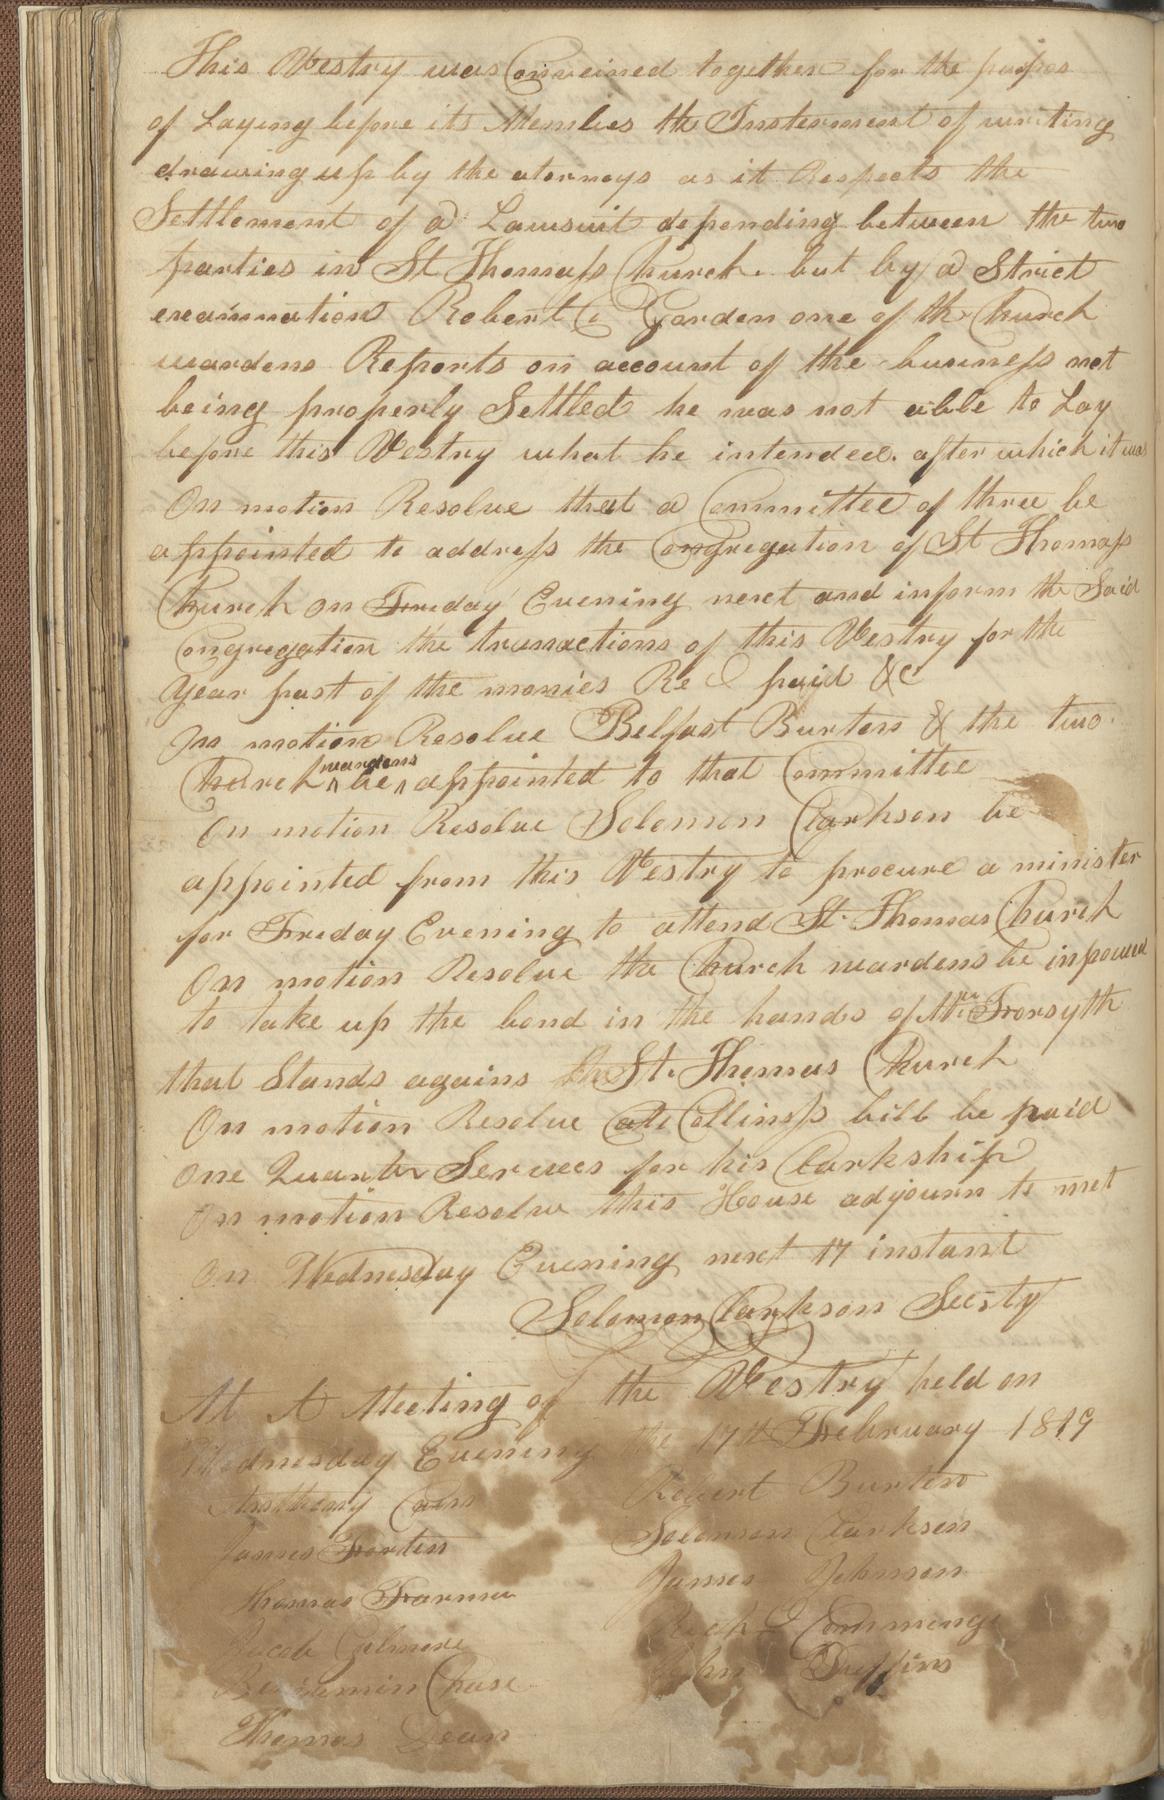 This Vestry was Conveined together for the purpos
of Laying before its Membies the Insterment of writing
drawing up by the atorneys as it Respects the
Settlement of a Lawsuit depending between the two
parties in St Thomass Church. but by a Strict
examination Robert C Gorden one of the Church
wardens Reports on account of the business not
being properly Settled he was not able to Lay
before this Vestry what he intended. after which it was
On motion Resolve that a Committee of three be
appointed to address the Congregation of St Thomass
Church on Friday Evening next and inform the Said
Congregation the transactions of this Vestry for the
Year past of the monies Re d paid &c
On motion Resolve Belfast Burten & the two
Church wardens be appointed to that Committee
On motion Resolve Solomon Clarkson be
appointed from this Vestry to procure a minister
for Friday Evening to attend St. Thomas Church
On motion Resolve the Church wardens be inpowed
to take up the bond in the hands of Mr Forsyth
that Stands agains St. Thomas Church
On motion Resolve Collinss bill be paid
One Quarter Servces for his Clarkship
On motion Resolve this House adjourn to met
On Wednesday Evening next 17 instant
Solomon Clarkson Secsty
At A Meeting of the Vestry held on
Wednesday Evening the 17th February 1819
Anthony Cain Robert Burten
James Forten Solomon Clarksen
Thomas Farmer James Johnson
Jacob Gilmore Commings
Benjemin Chase John Treffins
Thomas Dean